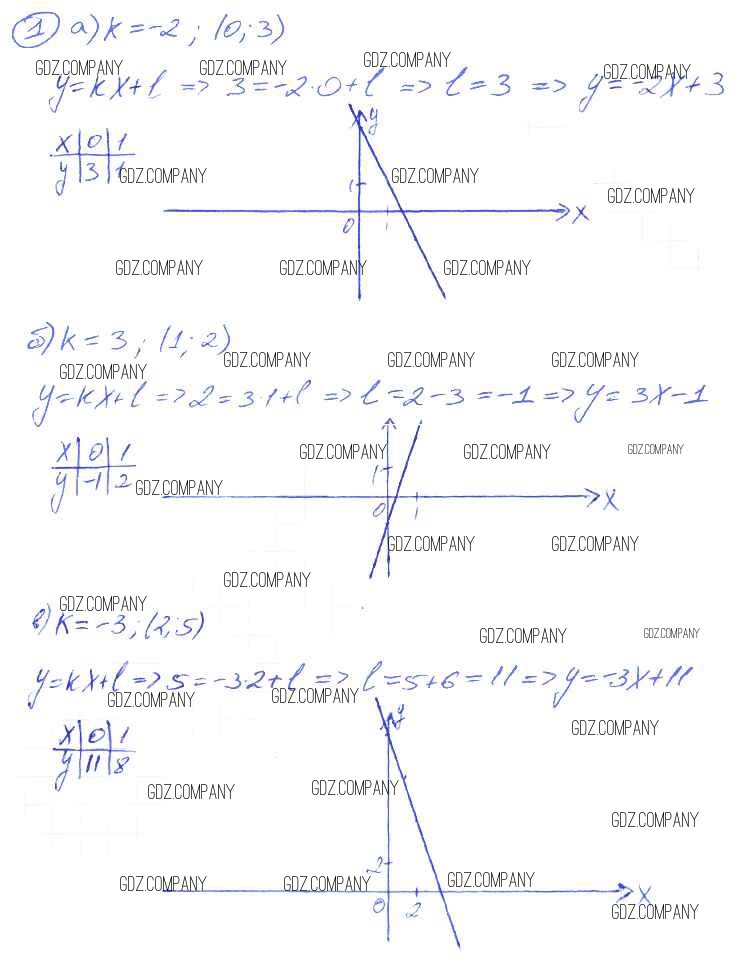 1 а) k = -2 ; (0; 3)
GDZ.COMPANY GDZ.COMPANY GDZ.COMPANY GDZ.COMPANY
y = kx + l => 3 = -2·0 + l => l = 3 => y = -2x + 3
x | 0 | 1
y | 3 | 1
y
GDZ.COMPANY GDZ.COMPANY GDZ.COMPANY
1
0 1 x
GDZ.COMPANY GDZ.COMPANY GDZ.COMPANY
б) k = 3 ; (1; 2)
GDZ.COMPANY GDZ.COMPANY GDZ.COMPANY GDZ.COMPANY
y = kx + l => 2 = 3·1 + l => l = 2 - 3 = -1 => y = 3x - 1
x | 0 | 1
y | -1 | 2
GDZ.COMPANY GDZ.COMPANY GDZ.COMPANY
1
GDZ.COMPANY
0 1 x
GDZ.COMPANY GDZ.COMPANY
GDZ.COMPANY
GDZ.COMPANY
в) k = -3 ; (2; 5)
GDZ.COMPANY GDZ.COMPANY
y = kx + l => 5 = -3·2 + l => l = 5 + 6 = 11 => y = -3x + 11
GDZ.COMPANY GDZ.COMPANY
x | 0 | 1
y | 11 | 8
y
GDZ.COMPANY
GDZ.COMPANY GDZ.COMPANY GDZ.COMPANY
2
GDZ.COMPANY GDZ.COMPANY GDZ.COMPANY
0 2 x
GDZ.COMPANY